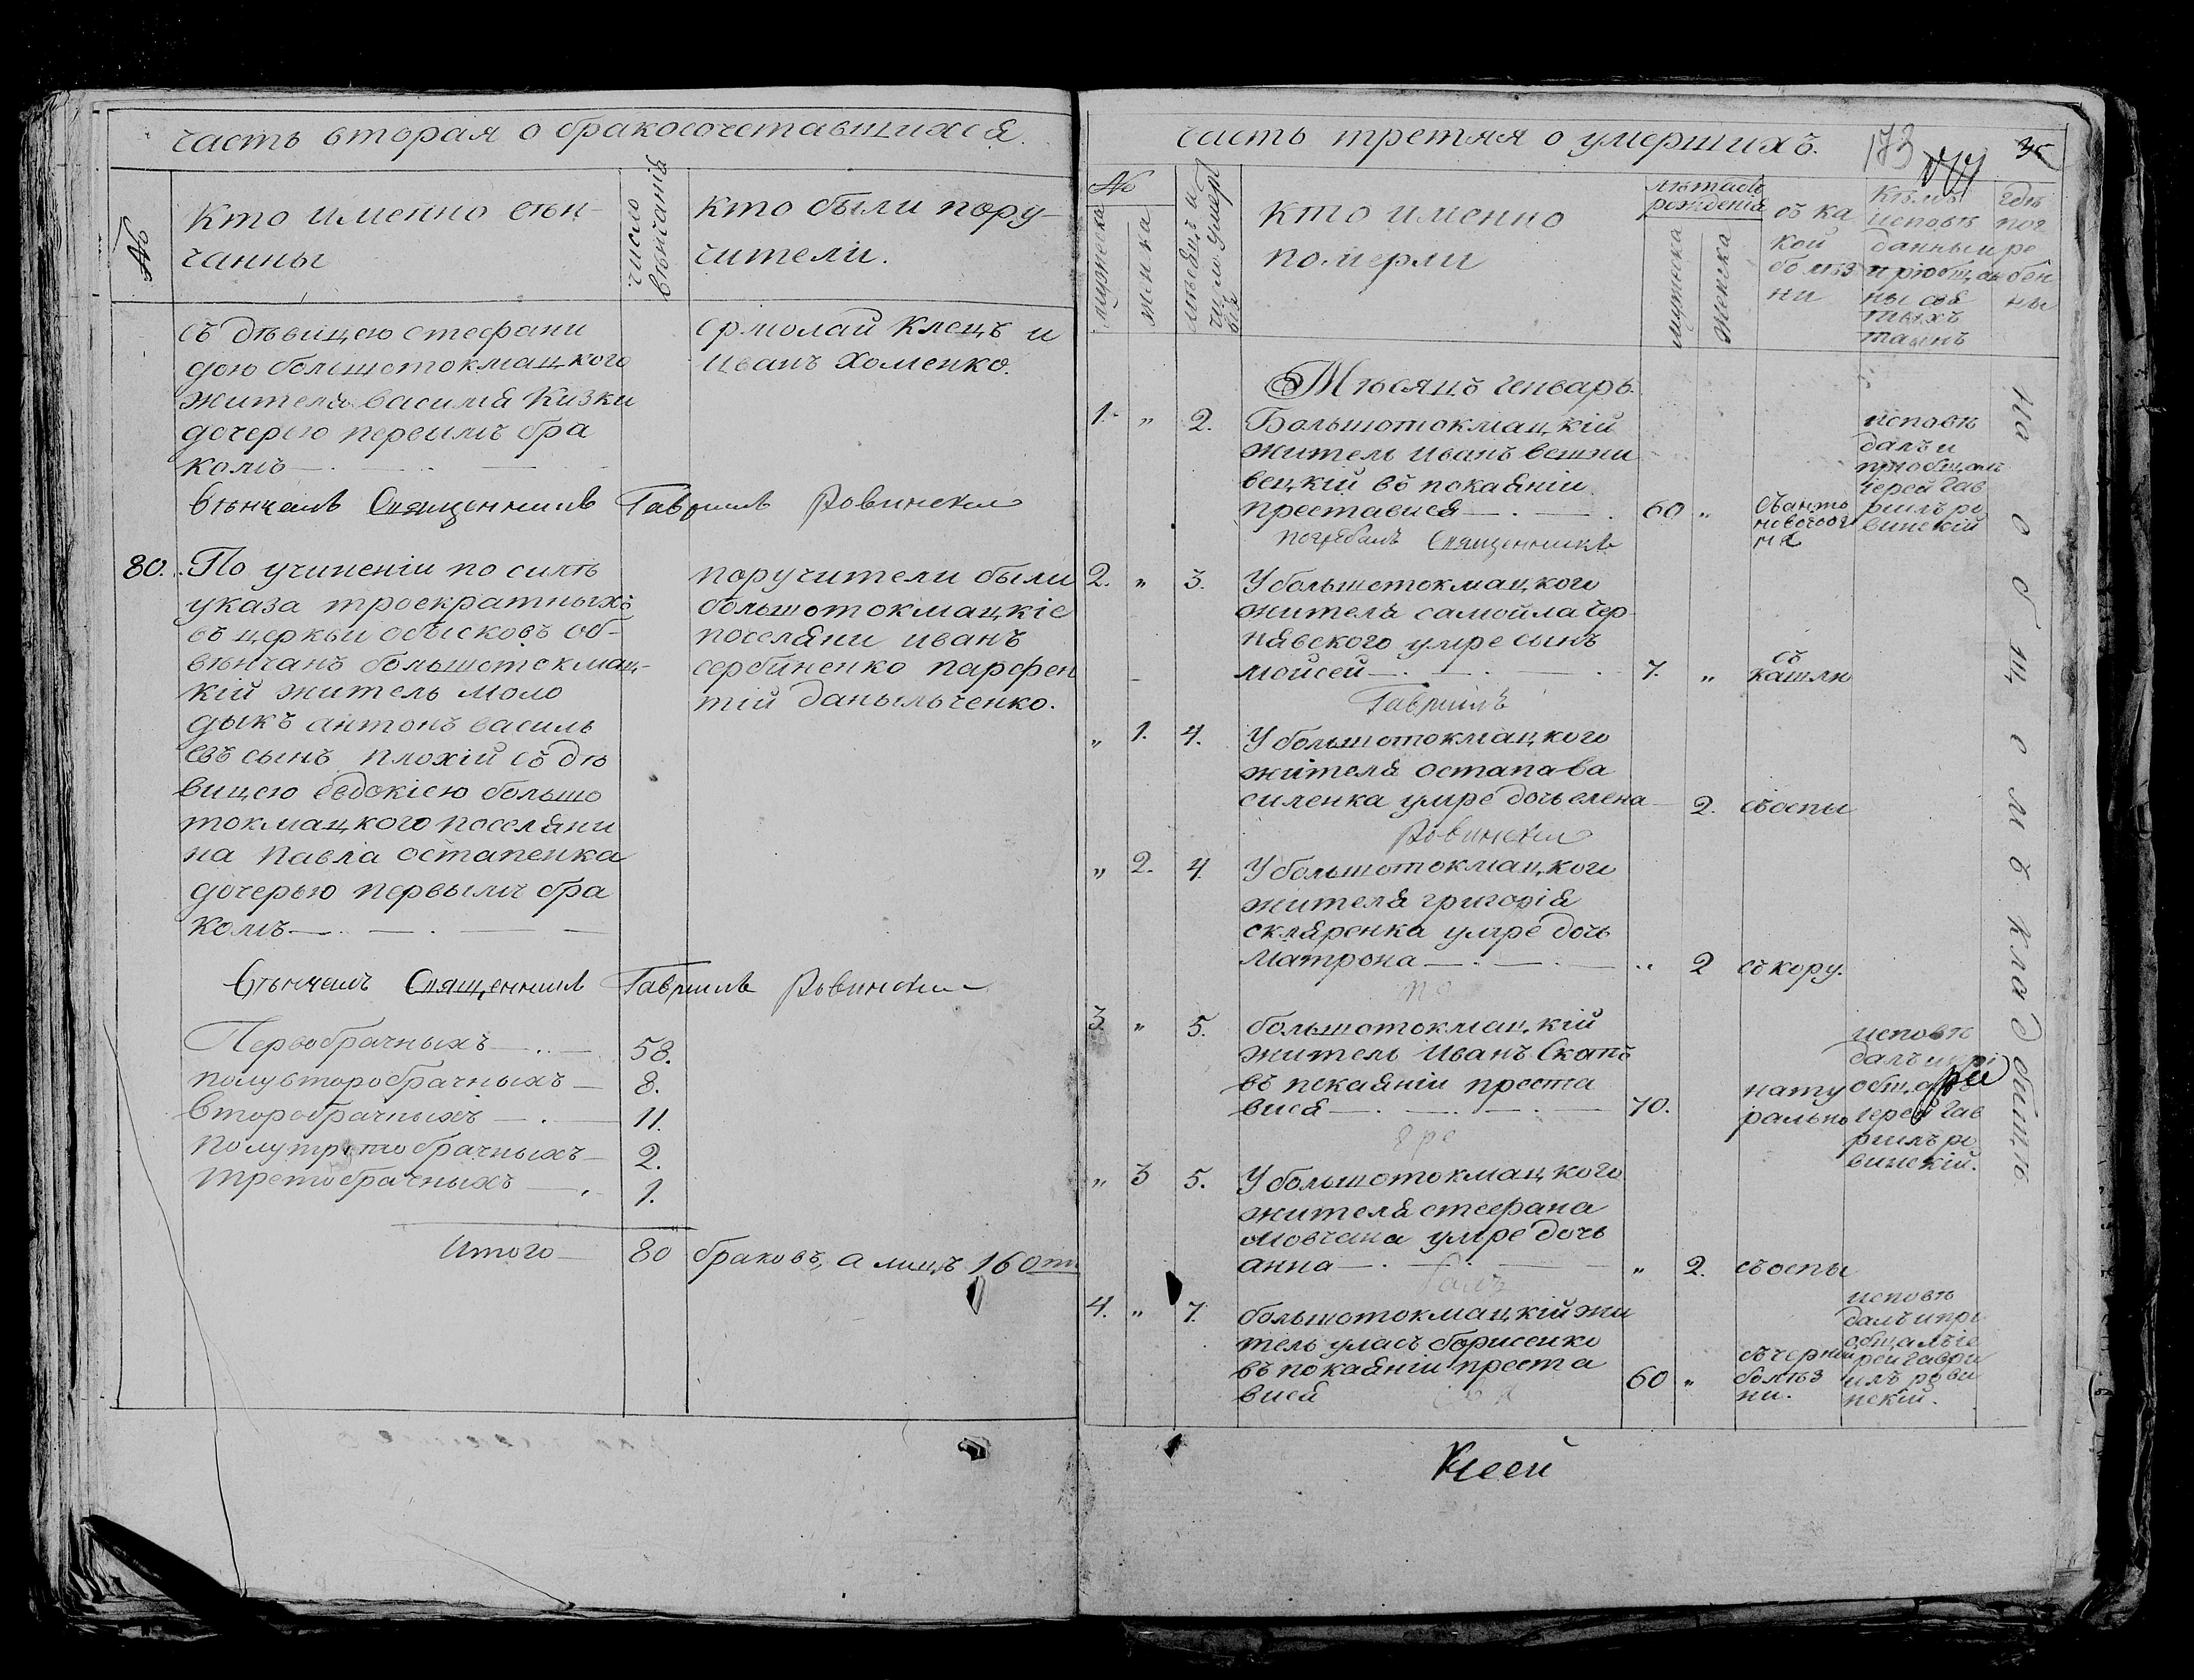 часть вторая о бракосочетавшихся.
№
Кто именно вѣн-
чанны
число
вѣнчанія
кто были пору-
чители.
съ дѣвицею стефани
дою большотокмацкого
жителя василія Кизки
дочерью первымъ бра
комъ
ермолай Клецъ и
Иванъ Хоменко.
Вѣнчалъ Священникъ Гавриилъ Ровинскій
80. По учиненіи по силѣ
указа троекратныхъ
въ церкви обысковъ об-
вѣнчанъ большотокмац-
кій житель моло
дыкъ антонъ василь
евъ сынъ плохій съ дѣ
вицею евдокіею большо
токмацкого поселяни
на Павла остапенка
дочерью первымъ бра
комъ
поручители были
большотокмацкіе
поселяни иванъ
сербиненко парфен
тій даныльченко.
Вѣнчалъ Священникъ Гавриилъ Ровинскій
Первобрачныхъ 58.
полувторобрачныхъ 8.
Второбрачныхъ 11.
полутретобрачныхъ 2.
третобрачныхъ 1.
Итого 80 браковъ, а лицъ 160ти
часть третяя о умершихъ.
173
№
мужеска
женска
кто именно
померли
лѣта отъ
рожденія
мужеска
женска
съ ка
кой
болѣз
ни
Кѣмъ
исповѣ
данны и
пріобщен
ны свя
тыхъ
таинъ
гдѣ
пог
ре
бен
ны
Мѣсяцъ генварь.
1. „ 2. Большотокмацкій
житель иванъ вешни
вецкій въ покаяніи
преставися 60 „
погребалъ Священникъ
исповѣ
далъ и
пріобщалъ
іерей гав
риилъ ро
винскій
2. „ 3. У большотокмацкого
жителя самойла чер
нявского умре сынъ
мойсей 7. „ съ
кашлю
Гавриилъ
„ 1. 4. У большотокмацкого
жителя остапа ва
силенка умре дочь елена 2. съ оспы
Ровинскій
„ 2. 4. У большотокмацкого
жителя григорія
скляренка умре дочь
Матрона „ 2 съ кору.
по
3. „ 5. большотокмацкій
житель Иванъ Скапъ
въ покаяніи преста
вися 70. нату
рально
исповѣ
далъ и прі
общалъ
іерей гав
риилъ ро
винскій.
гре
„ 3 5. У большотокмацкого
жителя стефана
мовчана умре дочь
анна „ 2. съ оспы
балъ
4. „ 7. большотокмацкій жи
тель уласъ борисенко
въ покаяніи преста
вися 60 „ съ черной
болѣз
ни.
исповѣ
далъ и прі
общалъ іе
рей гаври
илъ рови
нскій.
на общемъ кладбищѣ